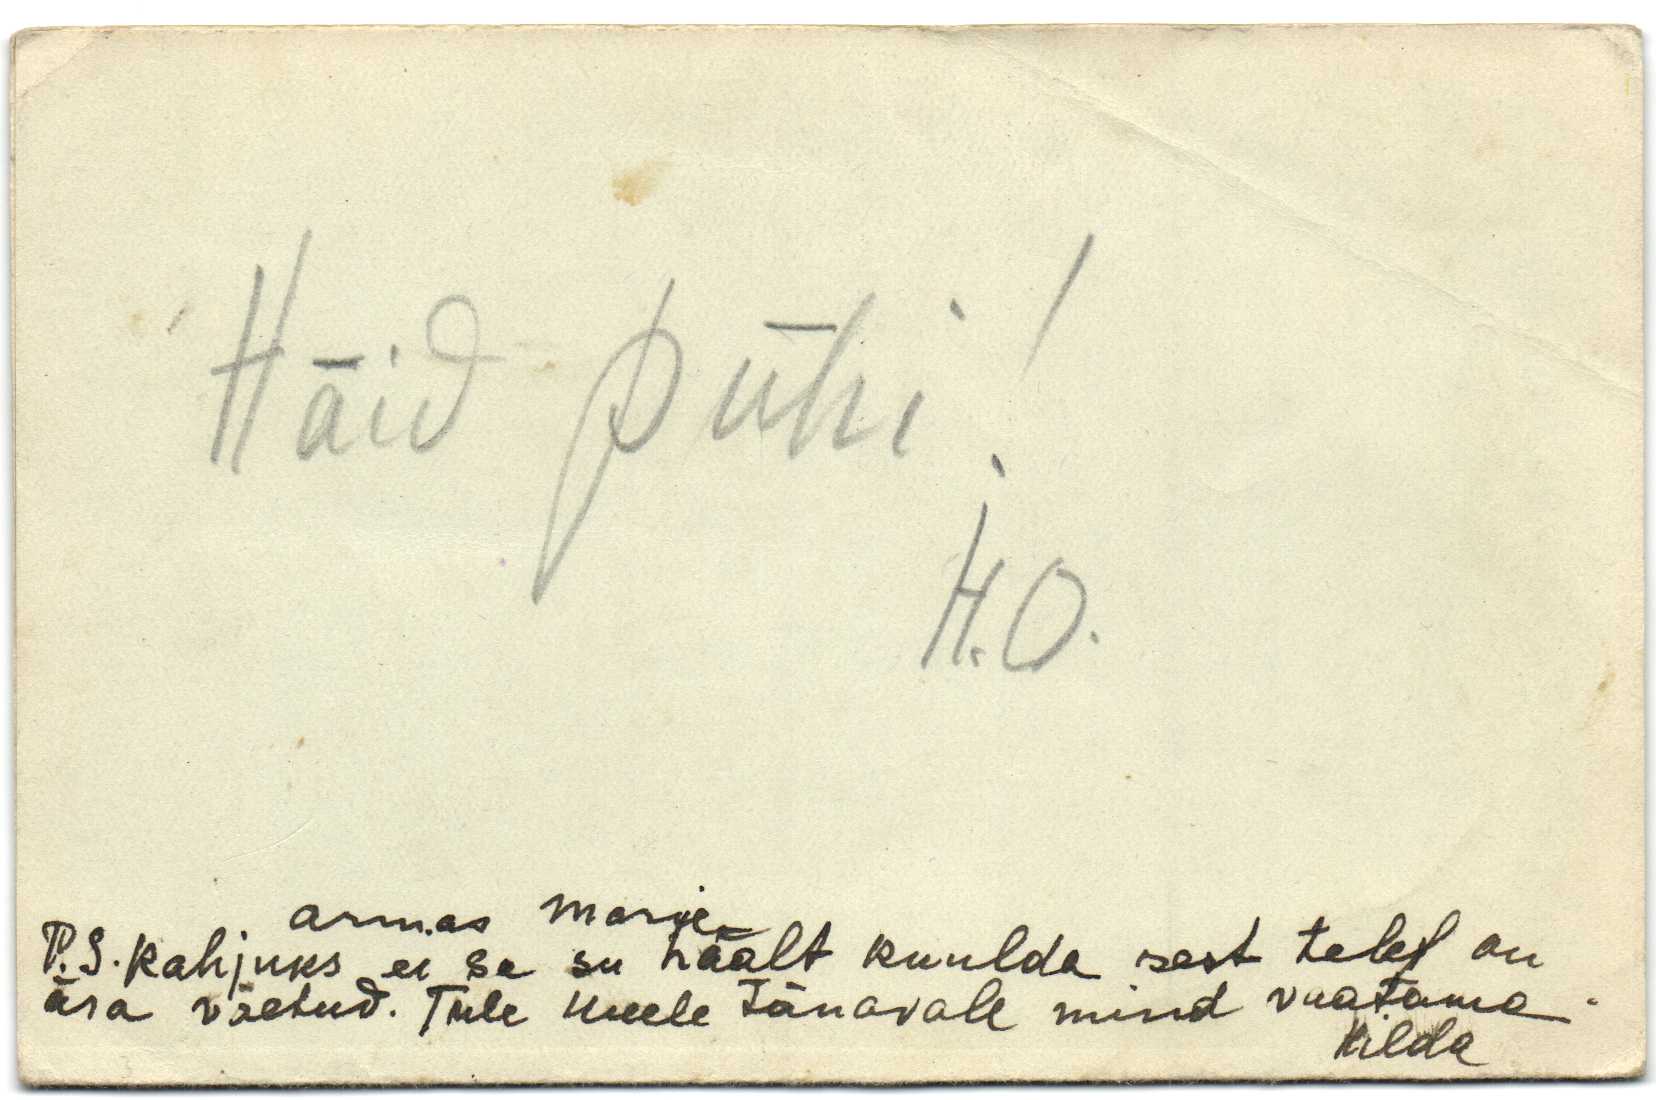 Häid pühi!
H.O.
armas Marje
P.S. Kahjuks ei sa su häält kuulda sest telef on
ära võetud. Tule Uuele Tänavale mind vaatama.
Hilda